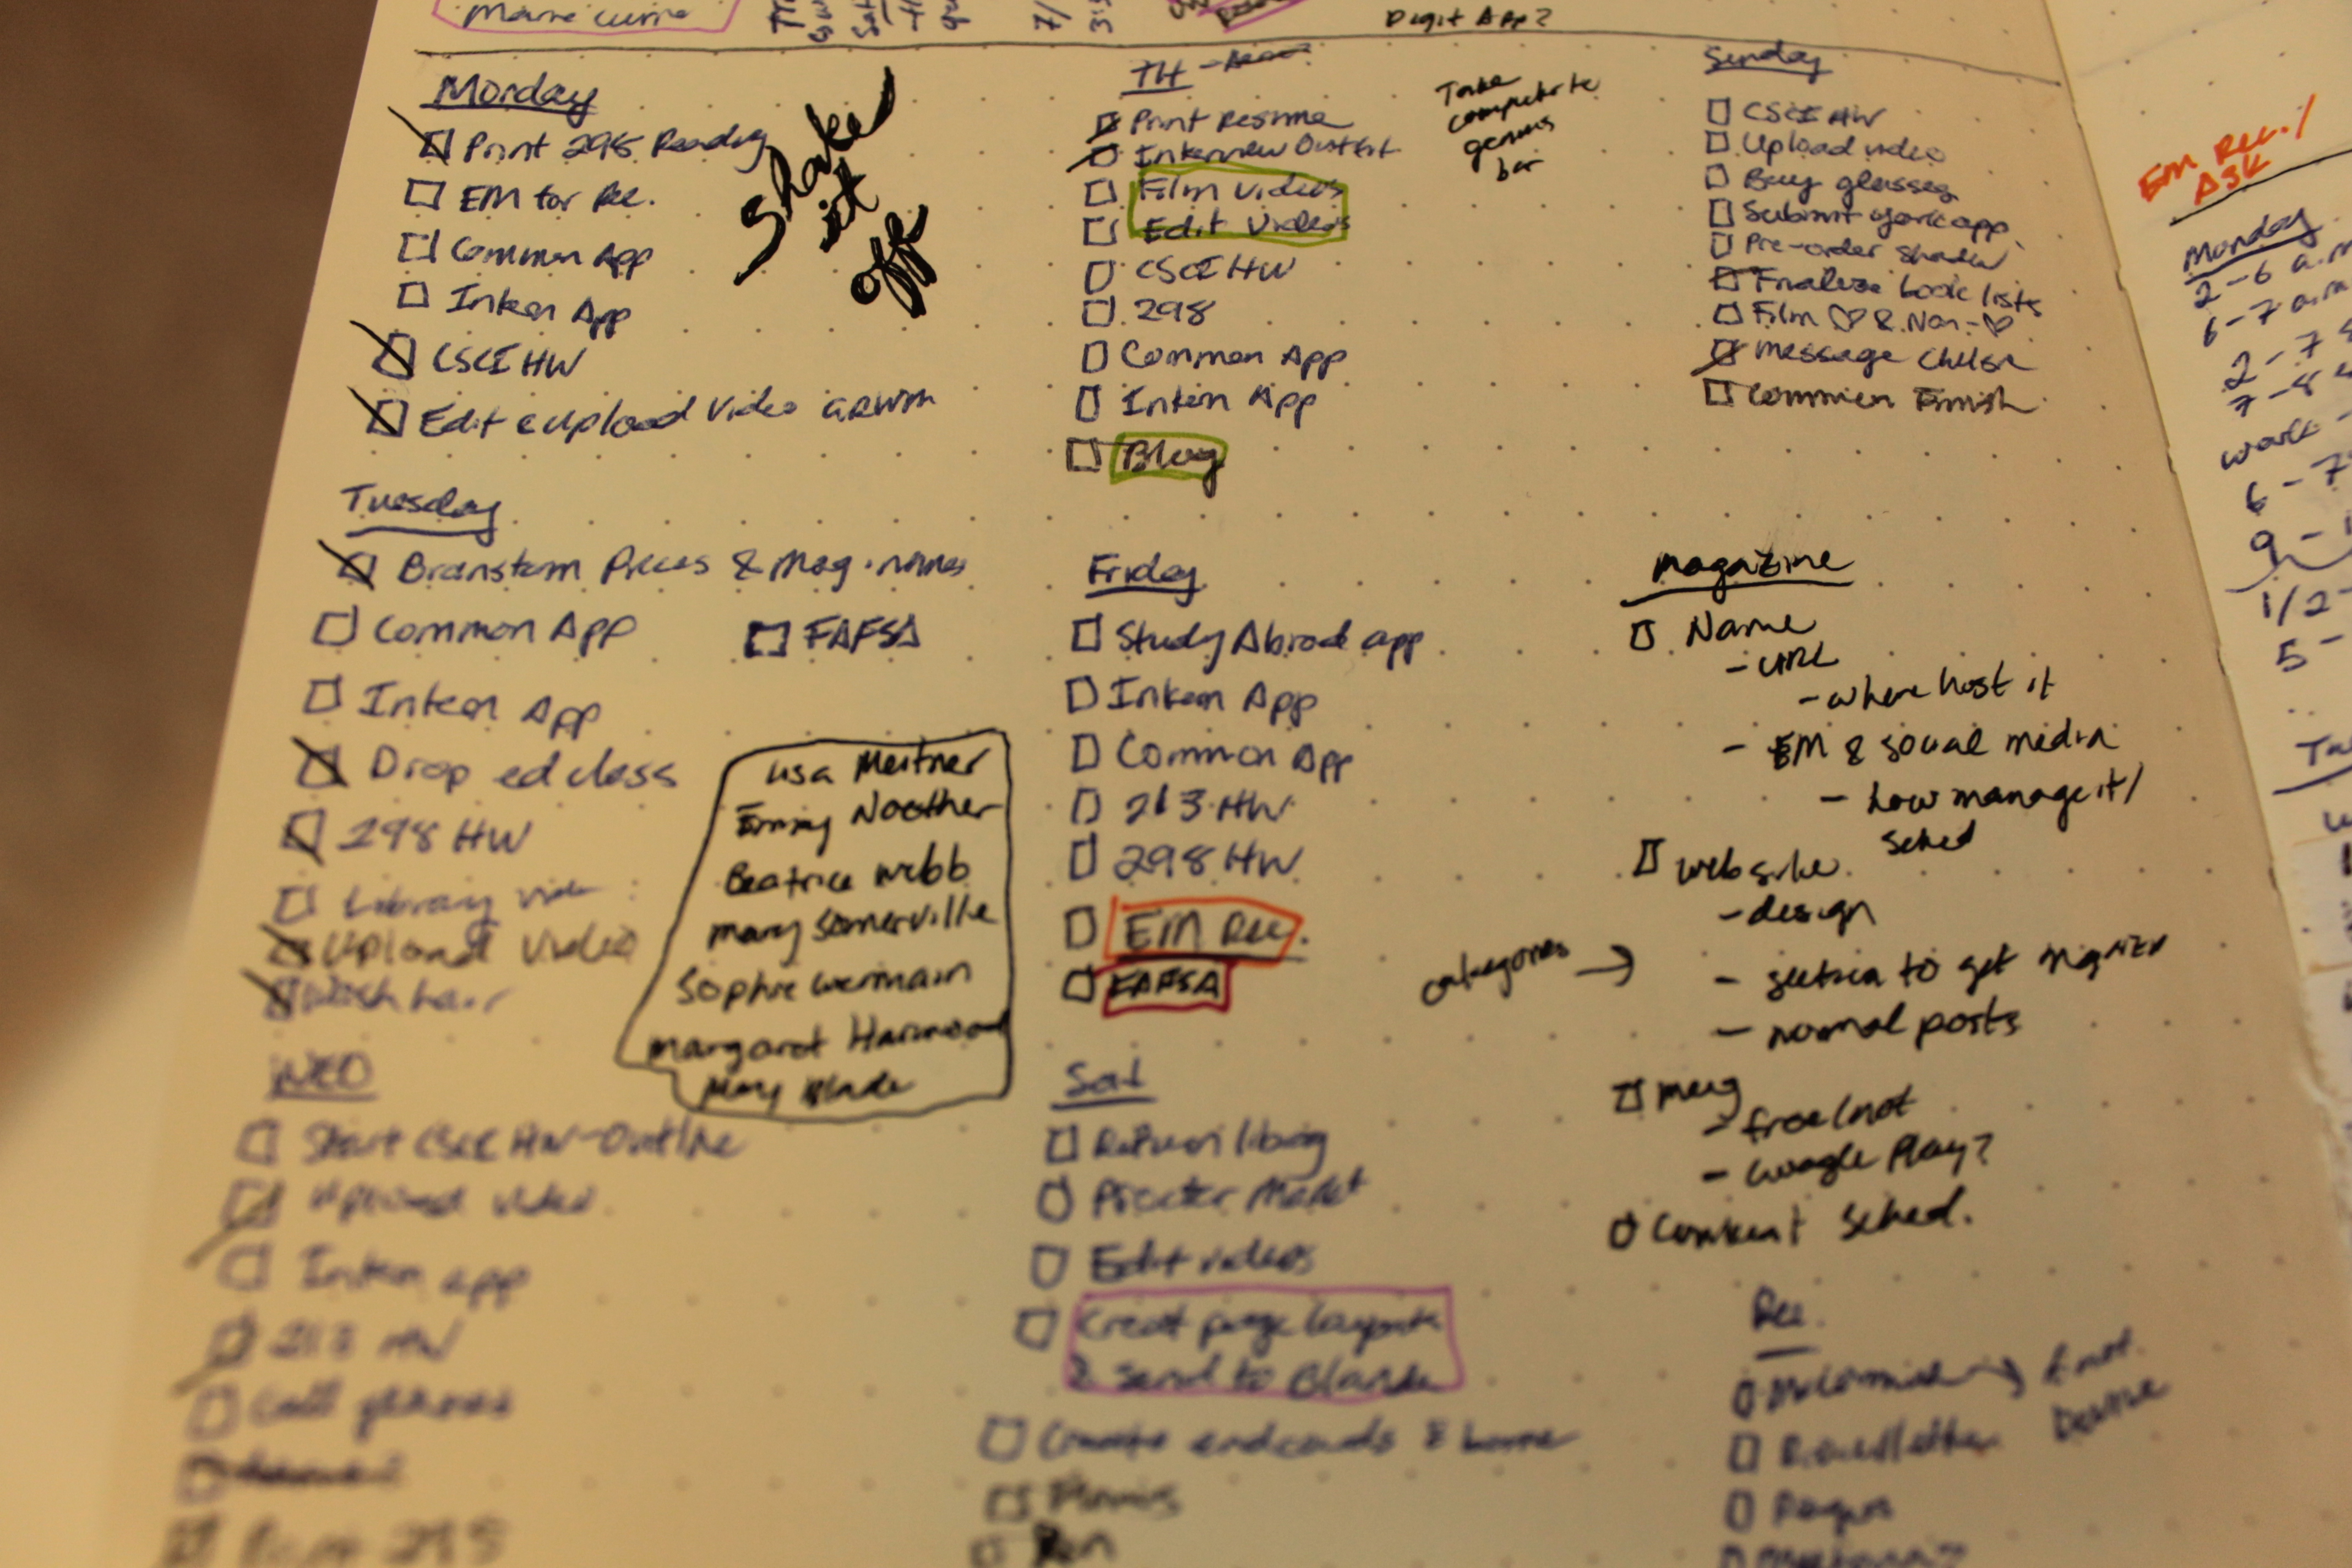 Digit App?
Monday
Print 298 Reading
EM for Rec.
Common App
Intern App
CSCI HW
Edit & Upload Video
Shake
it
off
Tuesday
Brainstorm Pieces & Mag. names
Common App
FAFSA
Intern App
Drop ed class
298 HW
Library
Upload Video
Wash hair
Lisa Meitner
Emmy Noether
Beatrice Webb
Mary Somerville
Sophie Germain
Margaret Harwood
Mary Blade
WED
Start CSCI HW-Outline
Upload video
Intern app
213 HW
Call glasses
TH -
Print Resume
Interview Outfit
Film Videos
Edit Videos
CSCI HW
298
Common App
Intern App
Blog
Take
computer to
genius
bar
Friday
Study Abroad app
Intern App
Common App
213 HW
298 HW
EM Rec.
FAFSA
Sat
Return library
Procter Market
Edit videos
Creat page layouts
& send to
Create endcards &
Sunday
CSCI HW
Upload video
Buy glasses
Submit york app
Pre-order Shadow
Finalize book lists
Film ♡ & Non-♡
Message Chelsea
Common Finish
Magazine
Name
- URL
- where host it
- EM & social media
- how manage it/
sched
website
- design
categories →
- to get
- normal posts
Mag
- free/not
- Google Play?
Content Sched.
Rec.
EM Rec./
ASK
Monday
2-6 a.m
6-7 a.m
2-7
7-8
work -
6-7
9-1
1/2-
5-